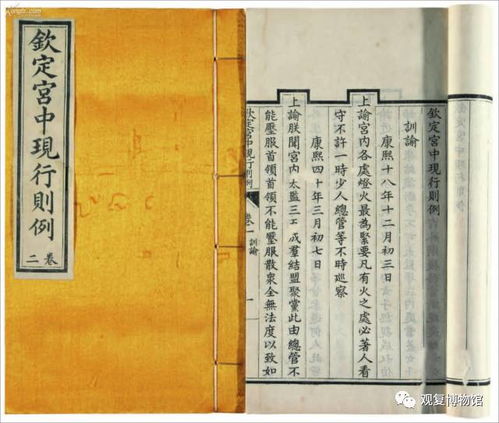 欽定宮中現行則例
卷
二
欽定宮中現行則例
訓諭
康熙十八年十二月初三日
上諭宮内各處燈火最為緊要凡有火之處必著人看
守不許一時少人總管等不時巡察
康熙四十年三月初七日
上諭朕聞宮内太監三五成羣結盟聚黨此由總管不
能壓服首領首領不能壓服散衆全無法度以致如
欽定宮中現行則例
卷一
訓諭
一
观复博物馆